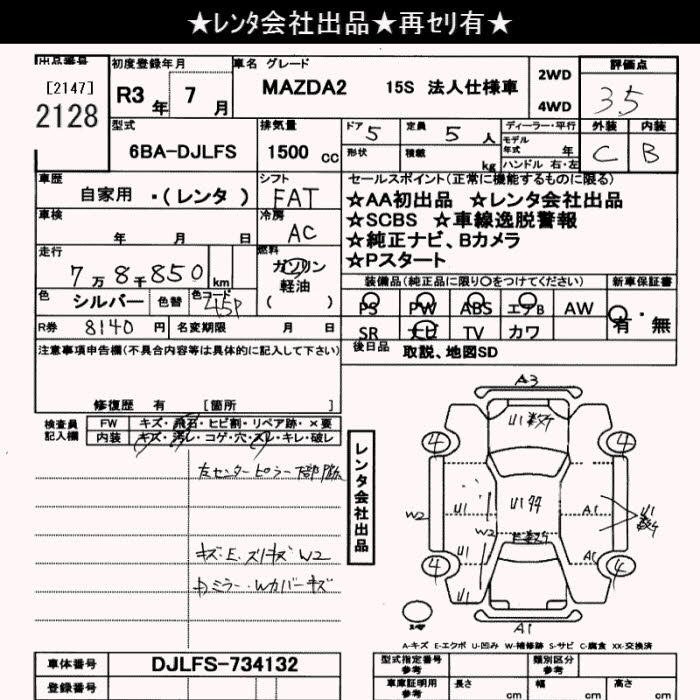 ★ﾚﾝﾀ会社出品★再ｾﾘ有★
出品番号
[2147]
2128
初度登録年月
R3年 7月
車名 グレード
MAZDA2 15S 法人仕様車
2WD
4WD
評価点
3.5
型式
6BA-DJLFS
排気量
1500 cc
ドア 5
定員 5 人
形状
積載 kg
ディーラー・平行
モデル年式 年
ハンドル 右・左
外装 C
内装 B
車歴
自家用 ・(レンタ)
シフト
FAT
車検
年 月 日
冷房
AC
走行
7万8千850 km
燃料
ガソリン
軽油
( )
色 シルバー 色替 色コード 45P
R券 8140 円 名変期限 月 日
セールスポイント(正常に機能するものに限る)
☆AA初出品 ☆レンタ会社出品
☆SCBS ☆車線逸脱警報
☆純正ナビ、Bカメラ
☆Pスタート
装備品(純正品に限り○をつけてください) 新車保証書
PS PW ABS エアB AW
有・無
SR ナビ TV カワ
後日品 取説、地図SD
注意事項申告欄(不具合内容等は具体的に記入して下さい)
修復歴 有 [箇所 ]
検査員
記入欄
FW キズ・飛石・ヒビ割・リペア跡・×要
内装 キズ・汚レ・コゲ・穴・スレ・キレ・破レ
キズ・E・スリキズ W2
ミラー・Wカバーキズ
レンタ会社出品
A3
U1
4
4
U1
U1
A1
U1
W2
W2
U1
A1
4
4
U1
A1
A-キズ E-エクボ U-凹み W-補修跡 S-サビ C-腐食 XX-交換済
車体番号 DJLFS-734132
登録番号
型式指定番号
参考
類別区分
参考
車庫証明用
参考
長さ cm
幅 cm
高さ cm